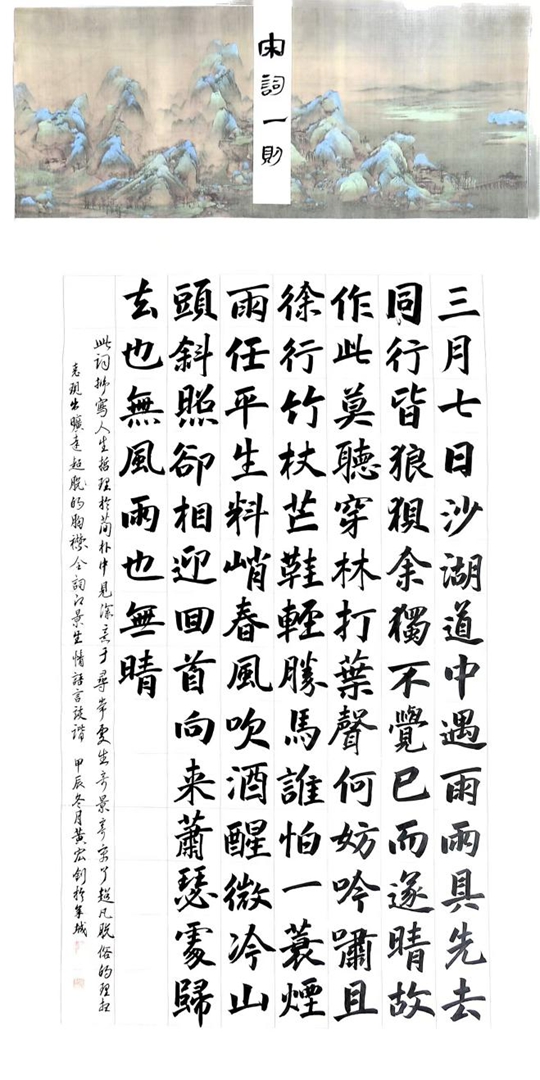 宋詞一則
三月七日沙湖道中遇雨雨具先去
同行皆狼狽余獨不覺已而遂晴故
作此莫聽穿林打葉聲何妨吟嘯且
徐行竹杖芒鞋輕勝馬誰怕一蓑煙
雨任平生料峭春風吹酒醒微冷山
頭斜照卻相迎回首向来蕭瑟處歸
去也無風雨也無晴
此词抒寫人生哲理於简朴中見深意于尋常處生奇景寄寓了超凡脱俗的理想
表現出曠達超脱的胸襟全詞即景生情語言詼諧 甲辰冬月黄宏剑於羊城